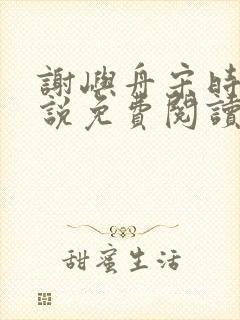 謝嶼舟宋時
說免費閱讀
甜蜜生活